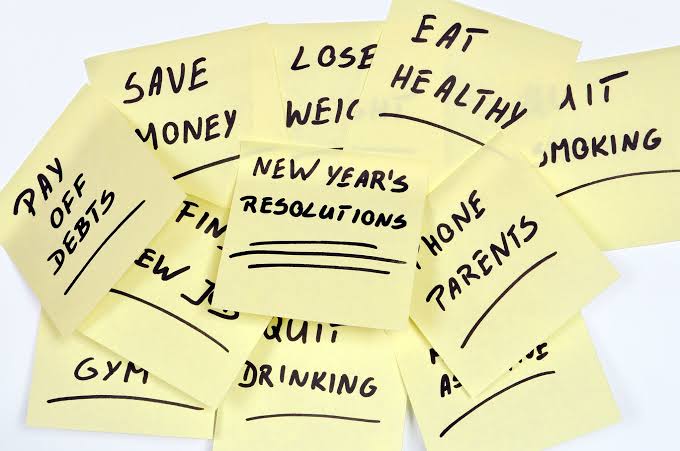 SAVE
MONEY
LOSE
EAT
HEALTHY
QUIT
SMOKING
PAY
OFF
DEBTS
NEW YEAR'S
RESOLUTIONS
PHONE
PARENTS
GYM
QUIT
DRINKING